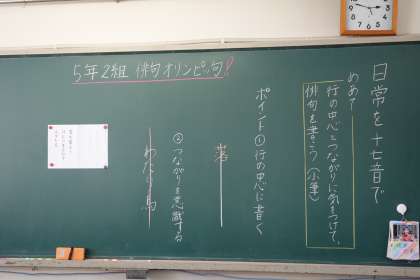 5年2組 俳句オリンピッ句!
日常を十七音で
めあて
行の中心とつながりに気をつけて、
俳句を書こう (小筆)
ポイント① 行の中心に書く
②つながりを意識する
わたり鳥